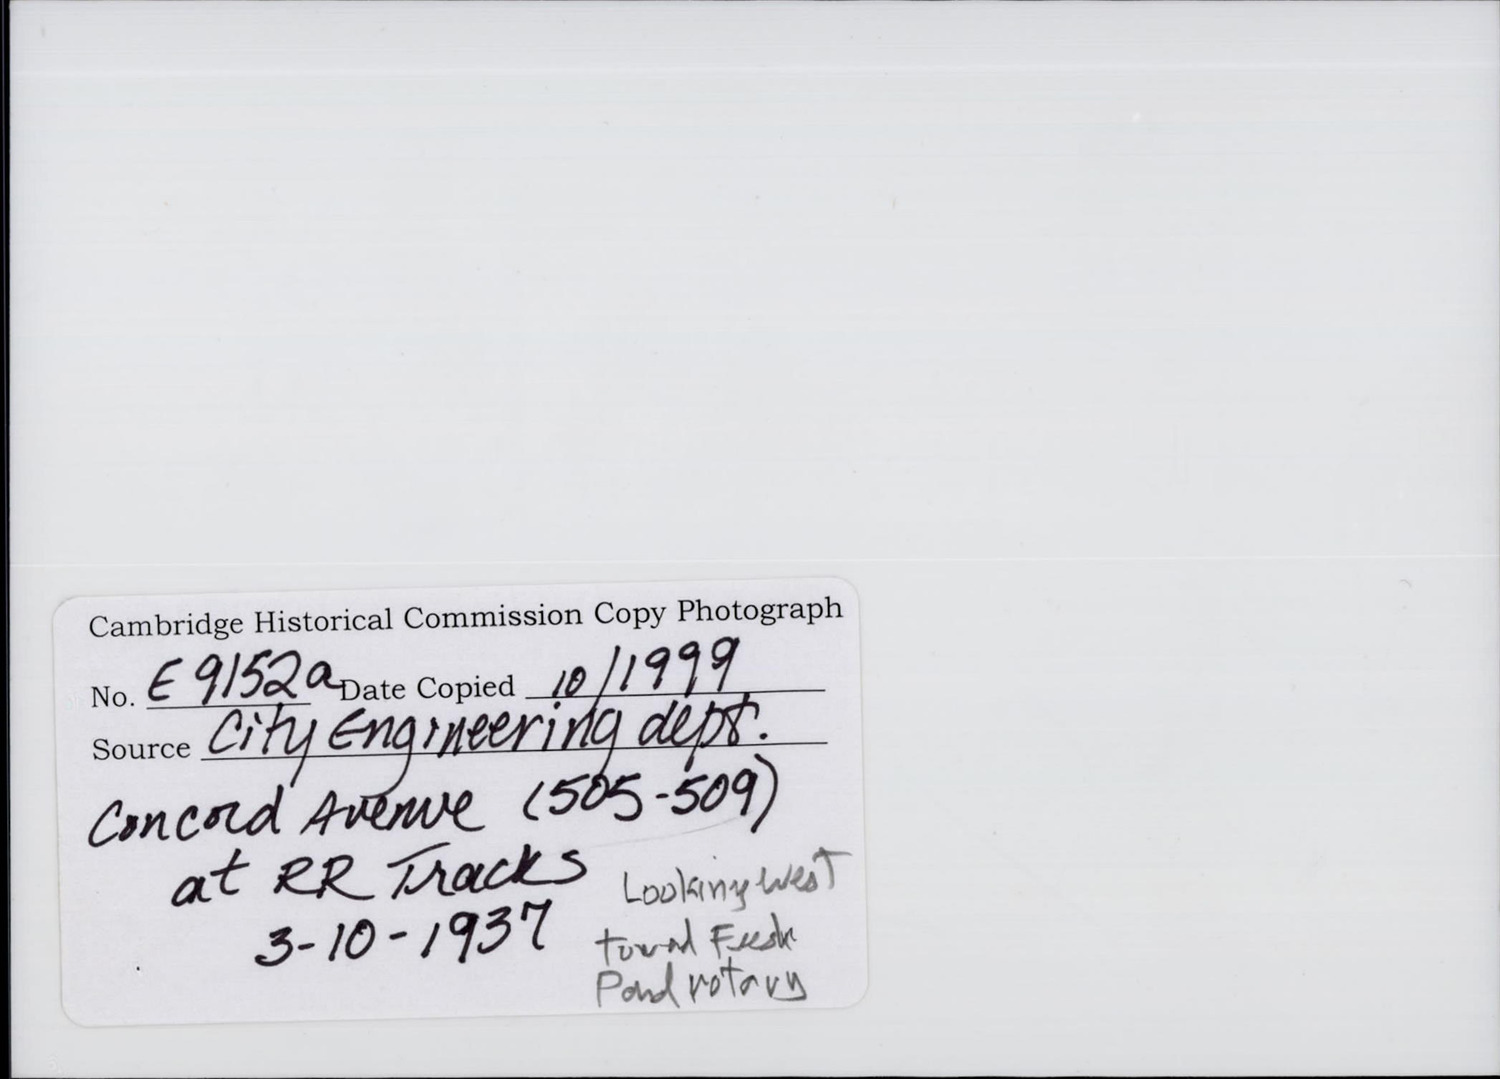 Cambridge Historical Commission Copy Photograph
No. E9152a Date Copied 10/1999
Source City Engineering dept.
Concord Avenue (505-509)
at RR Tracks
3-10-1937
Looking West
toward Fresh
Pond rotary